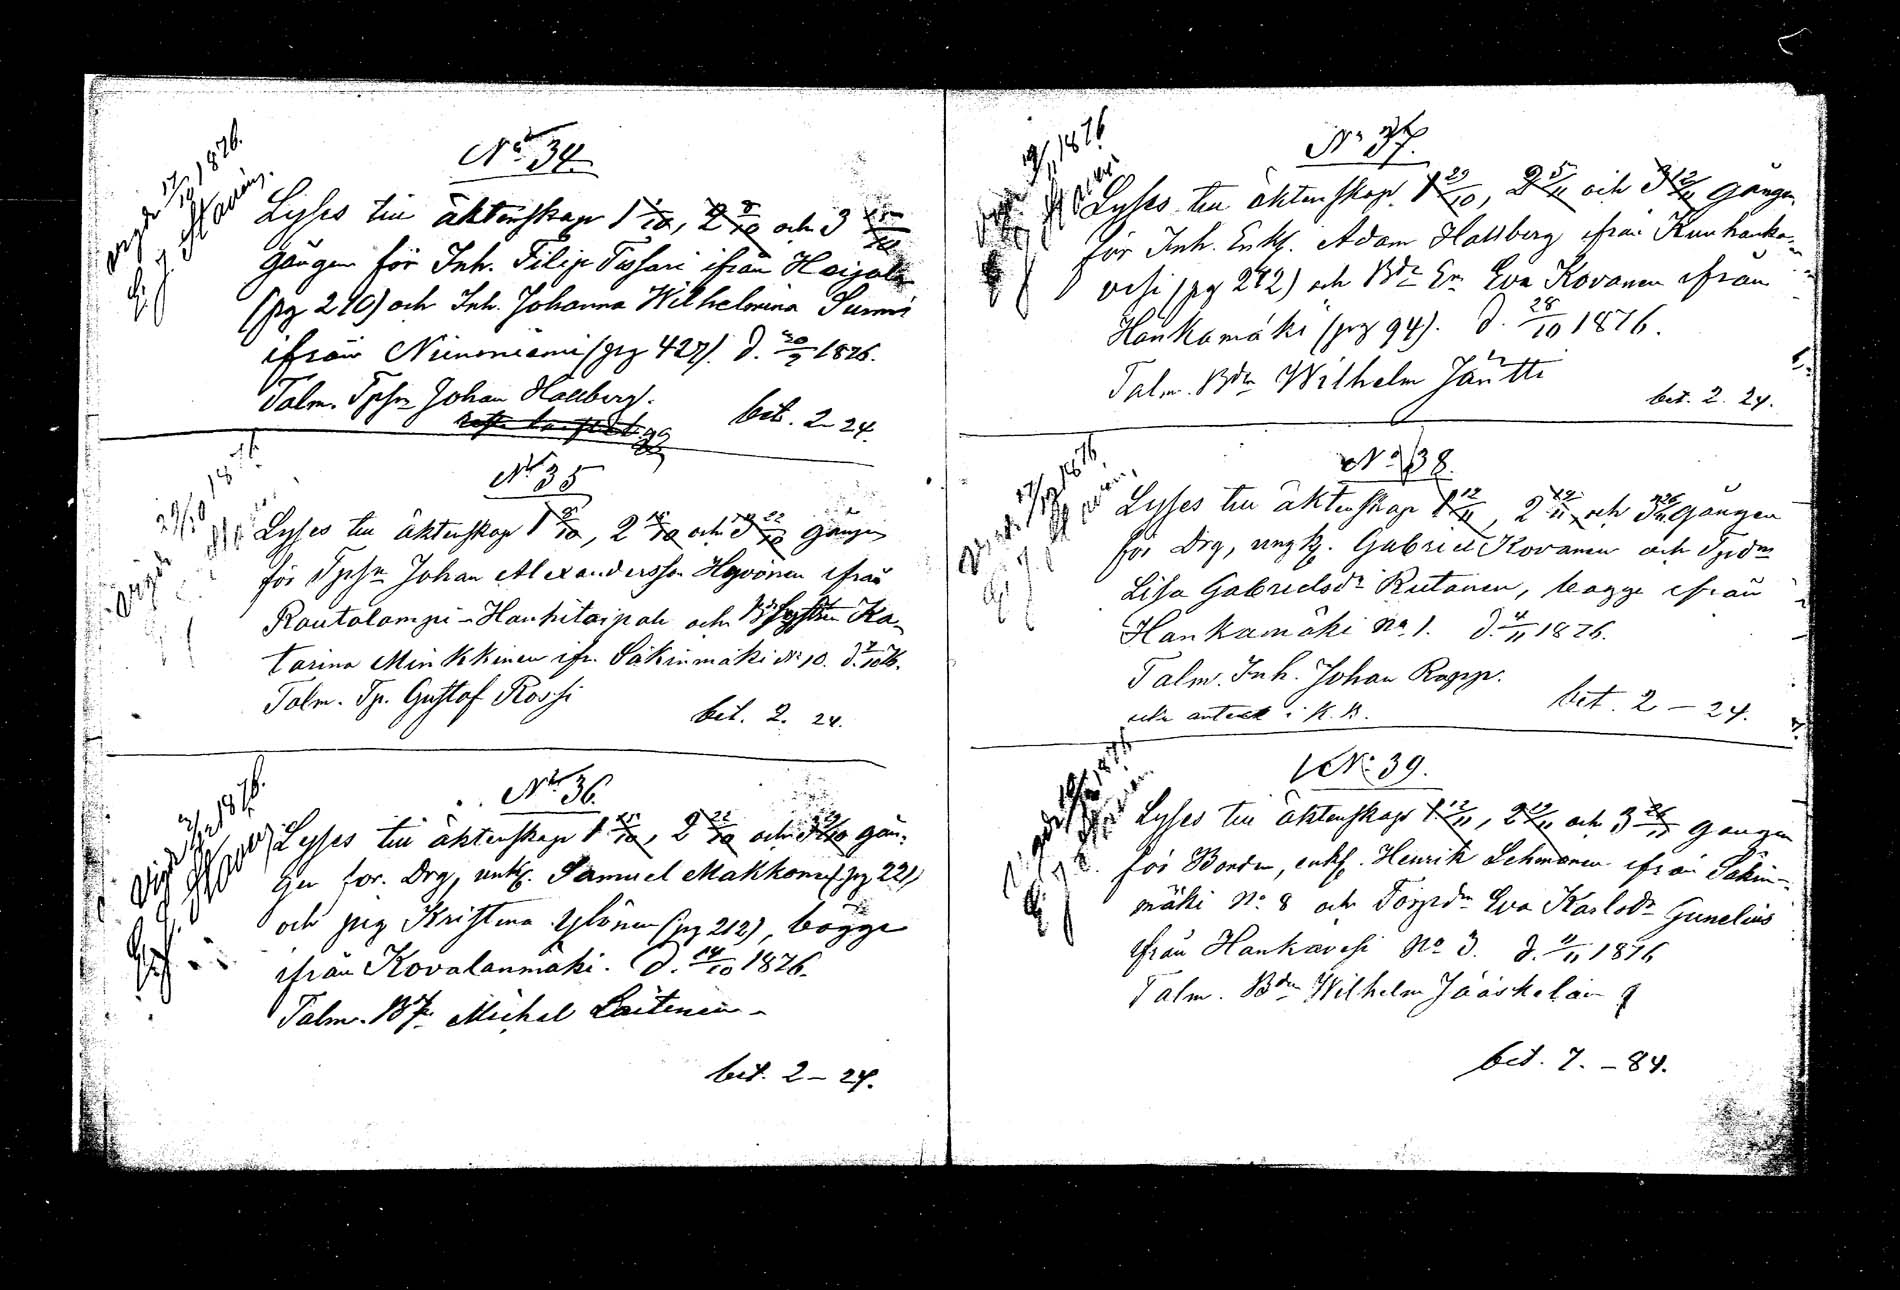 No 34.
Vigde 17/10 1876.
E. J. Stavén.
Lyses till äktenskap 1 1/10, 2 8/10 och 3 15/10
gången för Inh. Filip Tissari ifrån Haijala
(pg 210) och Inh. Johanna Wilhelmina Summi
ifrån Niinoniemi (pg 427). d. 30/9 1876.
Talm. Tpsn Johan Hallberg.
bet. 2 - 24.
No 35
Vigde 29/10 1876
Lyses till äktenskap 1 8/10, 2 15/10 och 3 22/10 gången
för Tpsn Johan Alexandersson Hyvönen ifrån
Rautalampi - Hankitaipale och Ka-
tarina Minkkinen ifr. Säkinmäki No 10. d. 7/10 76.
Talm. Tp. Gustaf Rossi
bet. 2. 24.
No 36.
Vigde 3/12 1876.
E. J. Stavén
Lyses till äktenskap 1 15/10, 2 22/10 och 3 29/10 gån-
gen för Drg, unk. Samuel Makkonen (pg 221)
och pig Kristina Ylönen (pg 212), bägge
ifrån Kovalanmäki. d. 14/10 1876.
Talm. Michel Laitinen
bet. 2 - 24.
No 37.
19/11 1876
Lyses till äktenskap 1 29/10, 2 5/11 och 3 12/11 gången
för Inh. Enkl. Adam Hallberg ifrån Kunhanka-
vesi (pg 242) och Bde En Eva Kovanen ifrån
Hankamäki (pg 94). d. 28/10 1876.
Talm. Bdn Wilhelm Jäntti
bet. 2. 24.
No 38.
17/12 1876
Lyses till äktenskap 1 12/11, 2 19/11 och 3 26/11 gången
för Drg, ungk. Gabriel Kovanen och Tpdn
Lisa Gabrielsdr Rutanen, bägge ifrån
Hankamäki No 1. d. 4/11 1876.
Talm. Inh. Johan Ropp.
anteck i K. B.
bet. 2 - 24.
No 39.
Vigde 1876
Lyses till äktenskap 1 12/11, 2 19/11 och 3 26/11 gången
för Bonden, enkl. Henrik Lehmonen ifrån Säkin-
mäki No 8 och Torpdn Eva Karlsdr Gunelius
ifrån Hankavesi No 3. d. 11/11 1876
Talm. Bdn Wilhelm Jääskeläin
bet. 7. - 84.